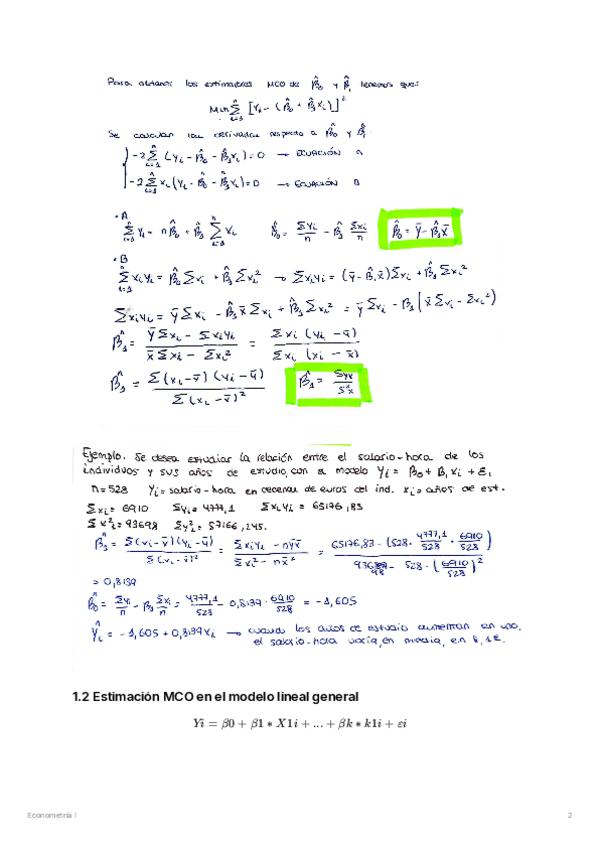 Para obtener los estimadores MCO de β̂₀ y β̂₁ tenemos que:
Min Σⁿᵢ₌₁ [Yᵢ - (β̂₀ + β̂₁xᵢ)]²
Se calculan las derivadas respecto a β̂₀ y β̂₁:
-2 Σⁿᵢ₌₁ (yᵢ - β̂₀ - β̂₁xᵢ) = 0 → ECUACIÓN A
-2 Σⁿᵢ₌₁ xᵢ(yᵢ - β̂₀ - β̂₁xᵢ) = 0 → ECUACIÓN B
· A
Σⁿᵢ₌₁ yᵢ = nβ̂₀ + β̂₁ Σⁿᵢ₌₁ xᵢ β̂₀ = Σyᵢ/n - β̂₁ Σxᵢ/n β̂₀ = ȳ - β̂₁x̄
· B
Σⁿᵢ₌₁ xᵢyᵢ = β̂₀Σxᵢ + β̂₁Σxᵢ² → Σxᵢyᵢ = (ȳ - β̂₁x̄)Σxᵢ + β̂₁Σxᵢ²
Σxᵢyᵢ = ȳΣxᵢ - β̂₁x̄Σxᵢ + β̂₁Σxᵢ² = ȳΣxᵢ - β₁(x̄Σxᵢ - Σxᵢ²)
β̂₁ = (ȳΣxᵢ - Σxᵢyᵢ)/(x̄Σxᵢ - Σxᵢ²) = Σxᵢ(yᵢ - ȳ)/Σxᵢ(xᵢ - x̄)
β̂₁ = Σ(xᵢ - x̄)(yᵢ - ȳ)/Σ(xᵢ - x̄)² β̂₁ = Syx/S²x
Ejemplo. Se desea estudiar la relación entre el salario-hora de los
individuos y sus años de estudio, con el modelo Yᵢ = β₀ + β₁xᵢ + εᵢ
n=528 Yᵢ = salario-hora en decenas de euros del ind. xᵢ = años de est.
Σxᵢ = 6910 Σyᵢ = 4777,1 Σxᵢyᵢ = 65176,83
Σx²ᵢ = 93698 Σy²ᵢ = 57166,245.
β̂₁ = Σ(xᵢ-x̄)(yᵢ-ȳ)/Σ(xᵢ-x̄)² = (Σxᵢyᵢ - nȳx̄)/(Σxᵢ² - nx̄²) = (65176,83 - (528 · 4777,1/528 · 6910/528))/(93698 - 528 · (6910/528)²)
= 0,8139
β̂₀ = Σyᵢ/n - β₁ Σxᵢ/n = 4777,1/528 - 0,8139 · 6910/528 = -1,605
Ŷᵢ = -1,605 + 0,8139xᵢ → cuando los años de estudio aumentan en uno,
el salario-hora varía, en media, en 8,1€.
1.2 Estimación MCO en el modelo lineal general
Yi = β0 + β1 ∗ X1i + ... + βk ∗ k1i + εi
Econometría I 2